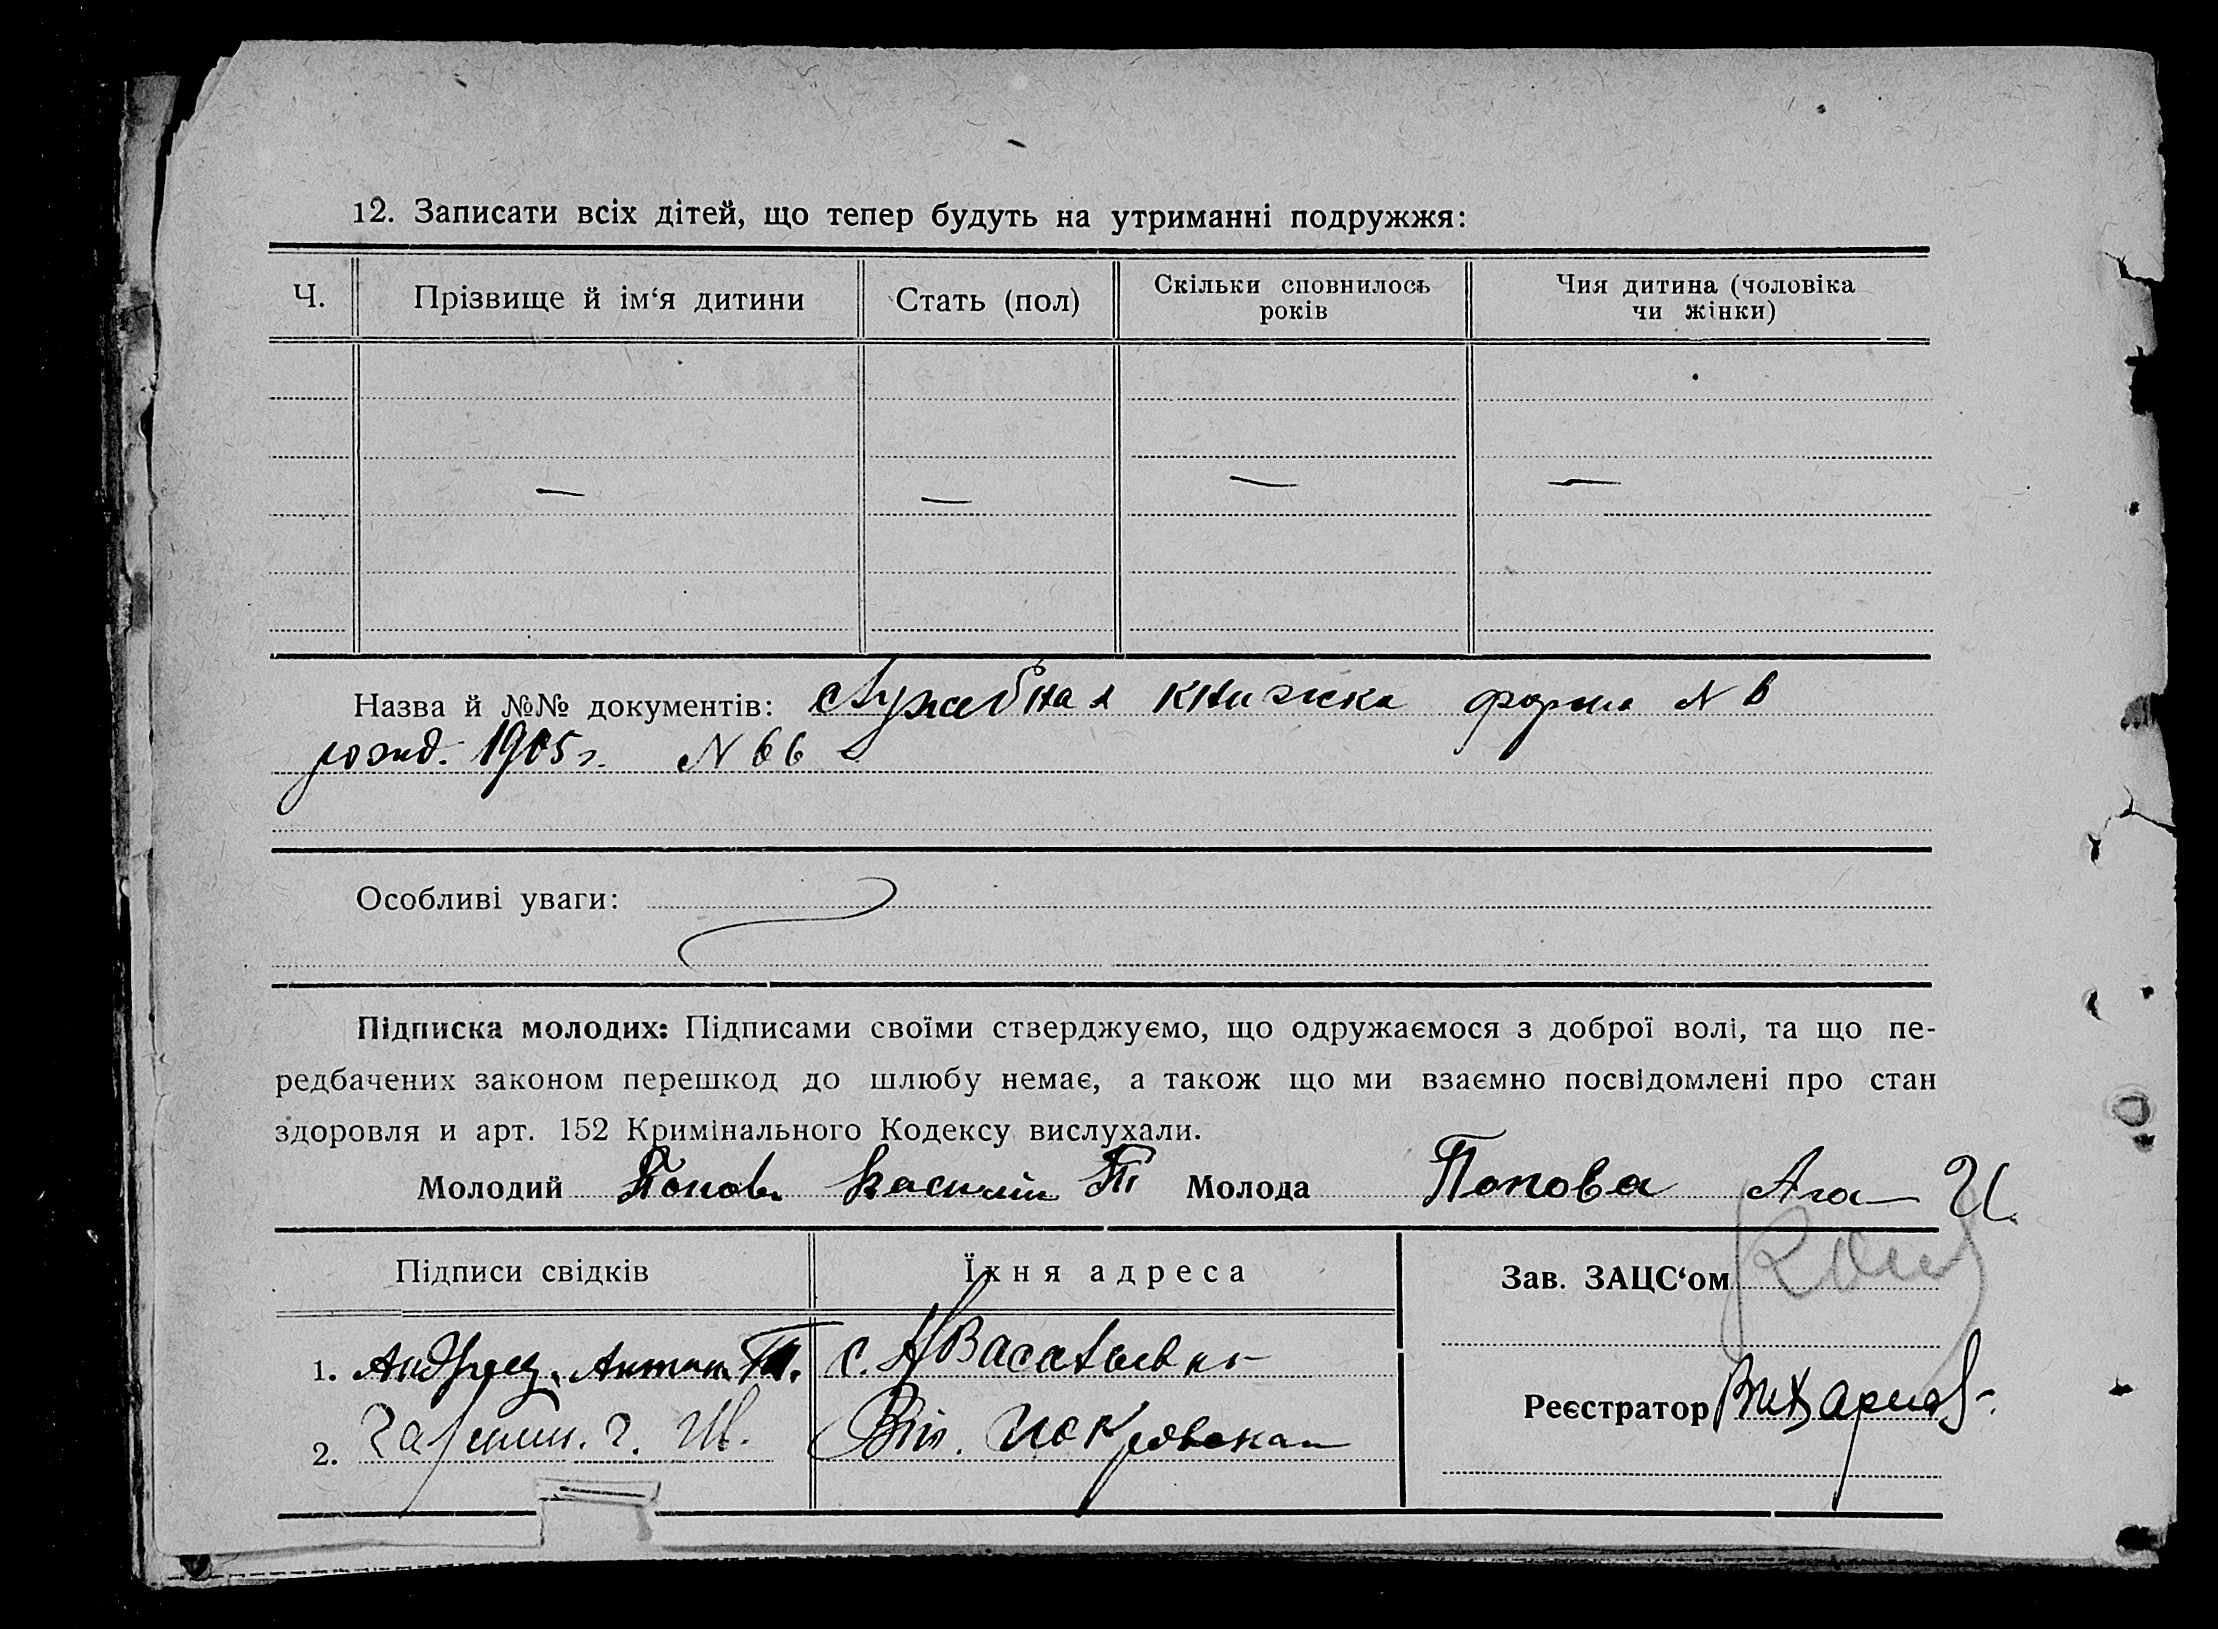 12. Записати всіх дітей, що тепер будуть на утриманні подружжя:
Ч. Прізвище й ім‘я дитини Стать (пол) Скільки сповнилось років Чия дитина (чоловіка чи жінки)
— — — —
Назва й №№ документів: служебная книжка форма № 6
рожд. 1905 г. № 66
Особливі уваги:
Підписка молодих: Підписами своїми стверджуємо, що одружаємося з доброї волі, та що пе-
редбачених законом перешкод до шлюбу немає, а також що ми взаємно посвідомлені про стан
здоровля и арт. 152 Кримінального Кодексу вислухали.
Молодий Попов Василий П Молода Попова И.
Підписи свідків Їхня адреса Зав. ЗАЦС‘ом
1. Антон П. с.
Реєстратор
2. Покровская